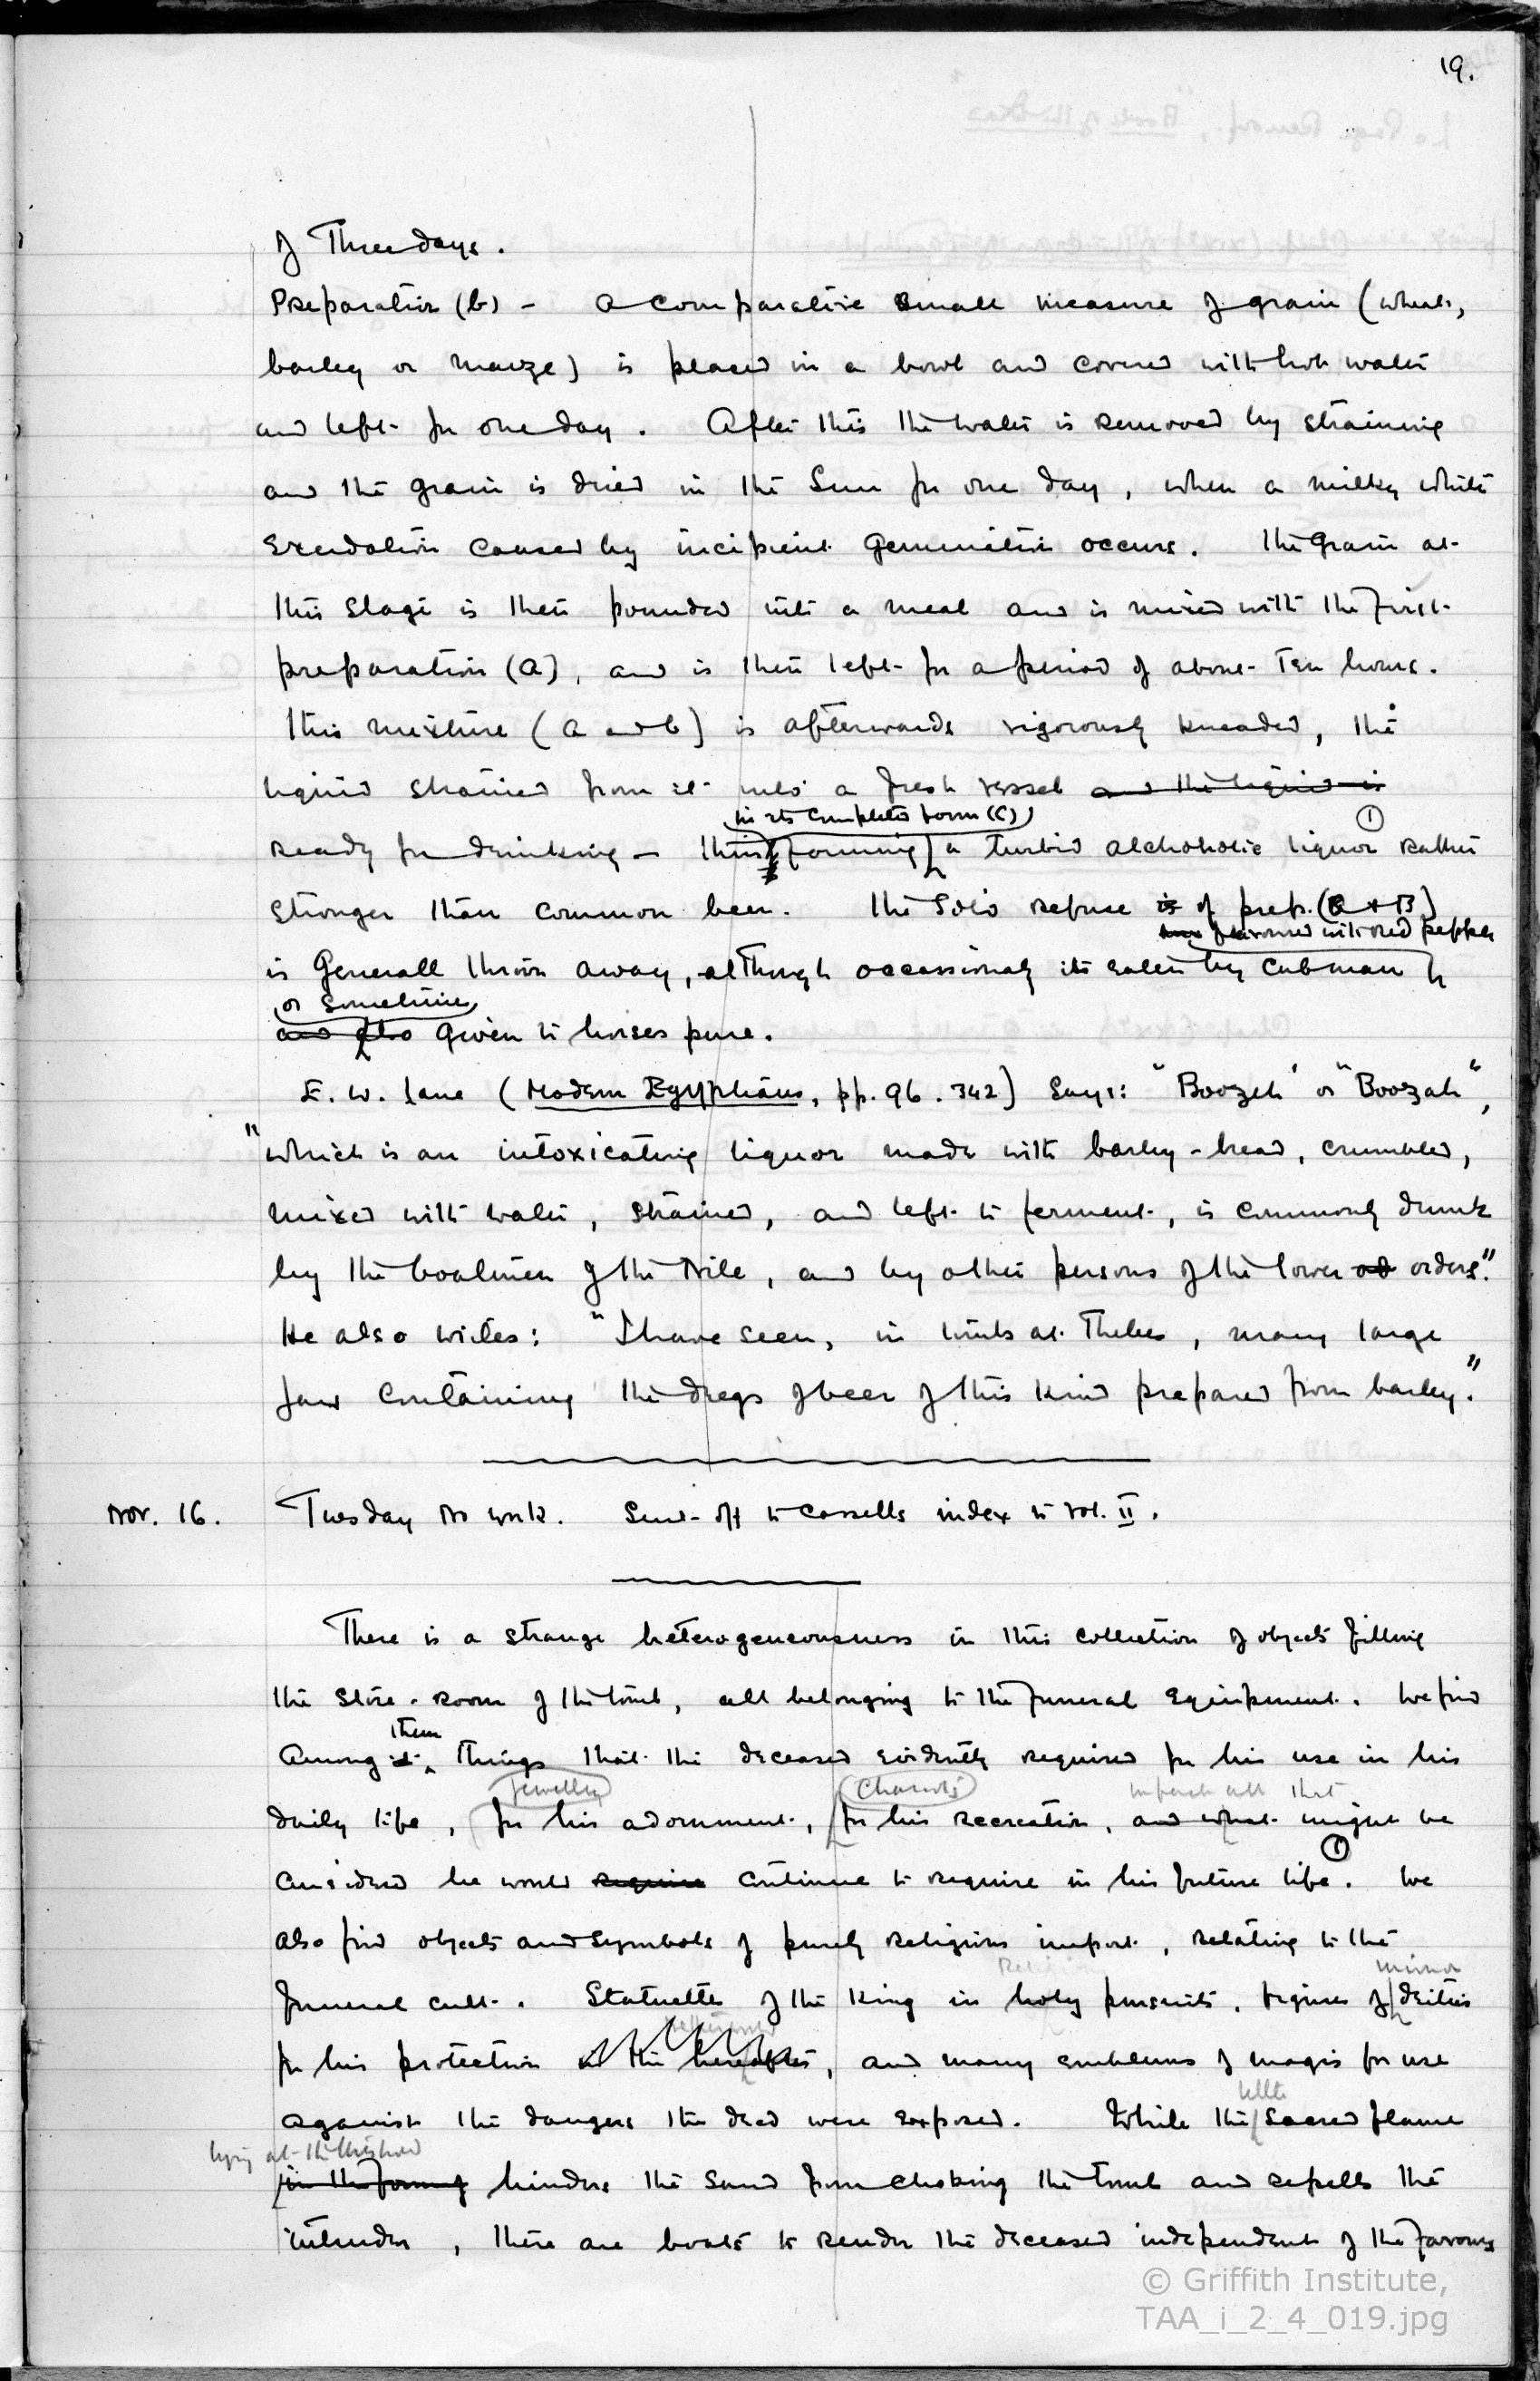 19.
of Three days.
Preparation (b) - a comparative small measure of grain (wheat,
barley or maize) is placed in a bowl and covered with hot water
and left for one day. After this the water is removed by straining
and the grain is dried in the sun for one day, when a milky white
exudation caused by incipient germination occurs. The grain at
this stage is then pounded into a meal and is mixed with the first
preparation (a), and is then left for a period of about ten hours.
This mixture (a and b) is afterwards vigorously kneaded, the
liquid strained from it into a fresh vessel and the liquid is
in its completed form (C) ①
ready for drinking - thus forming a turbid alchoholic liquor rather
stronger than common beer. The solid refuse is of prep. (a + B)
flavoured with red pepper
is generall thrown away, although occassionaly its eaten by cabman
or sometimes
and also given to horses pure.
E. W. Lane (Modern Egyptians, pp. 96. 342) says: "Boozeh" or "Boozah",
"which is an intoxicating liquor made with barley-bread, crumbled,
mixed with water, strained, and left to ferment, is commonly drunk
by the boatmen of the Nile, and by other persons of the lower od orders".
He also writes: "I have seen, in tombs at Thebes, many large
jars containing the dregs of beer of this kind prepared from barley."
Nov. 16. Tuesday No work. Sent off to Cassells index to vol. II.
There is a strange heterogeneousness in this collection of objects filling
the store-room of the tomb, all belonging to the funeral equipment. We find
them
among it things that the deceased evidently required for his use in his
jewellry chariots in fact all that
daily life, for his adornment, for his recreation, and what might be
①
considered he would require continue to require in his future life. We
also find objects and symbols of purely religious import, relating to the
minor
funeral cult. Statuettes of the King in holy pursuits, figures of deities
for his protection in the hereafter, and many emblems of magic for use
little
against the dangers the dead were exposed. While the sacred flame
lying at the threshold
in the form of hinders the sand from choking the tomb and repells the
intruder, there are boats to render the deceased independent of the favours
© Griffith Institute,
TAA_i_2_4_019.jpg